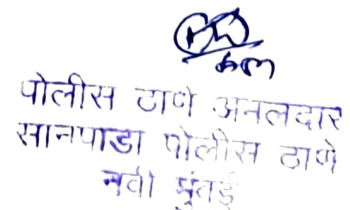 पोलीस ठाणे अंमलदार
सानपाडा पोलीस ठाणे
नवी मुंबई